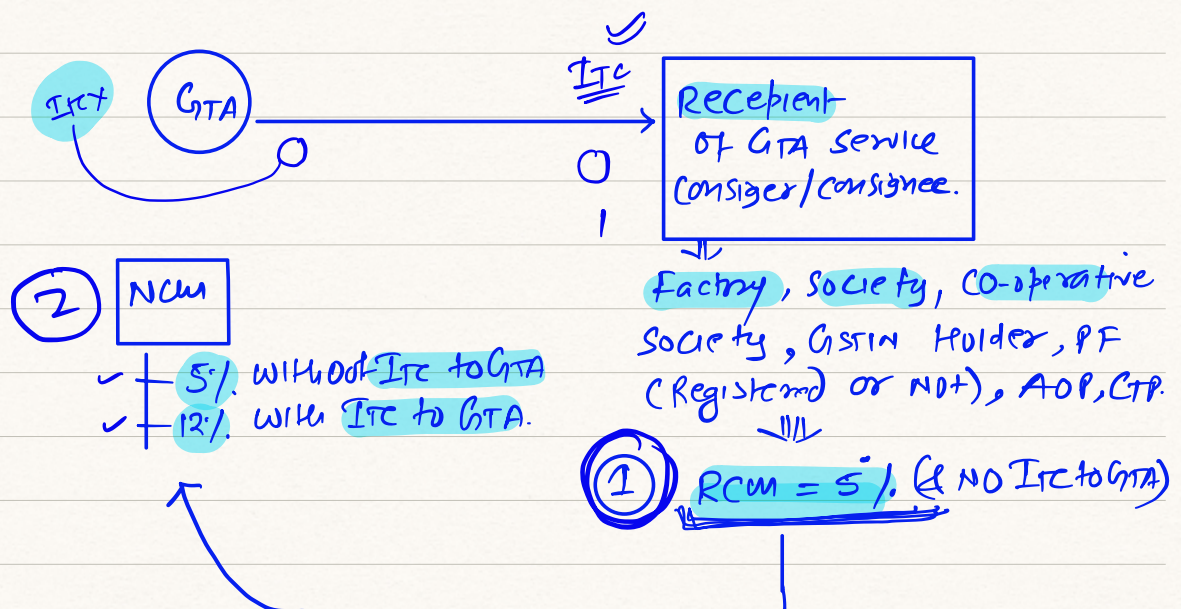 ITC
ITCX
GTA
O
O
1
Recepient
of GTA service
Consiger/Consignee.
Factory, Society, CO-operative
Society, GSTIN Holder, PF
(Registered or Not), AOP, CTP.
2
NCM
5%. without ITC to GTA
12%. with ITC to GTA.
1
RCM = 5%. (& NO ITC to GTA)